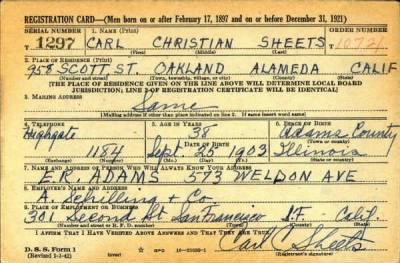 REGISTRATION CARD—(Men born on or after February 17, 1897 and on or before December 31, 1921)
SERIAL NUMBER 1. NAME (Print) ORDER NUMBER
T 1297 CARL CHRISTIAN SHEETS T 10721
(First) (Middle) (Last)
2. PLACE OF RESIDENCE (Print)
958 SCOTT ST. OAKLAND ALAMEDA CALIF
(Number and street) (Town, township, village, or city) (County) (State)
[THE PLACE OF RESIDENCE GIVEN ON THE LINE ABOVE WILL DETERMINE LOCAL BOARD
JURISDICTION; LINE 2 OF REGISTRATION CERTIFICATE WILL BE IDENTICAL]
3. MAILING ADDRESS
Same
[Mailing address if other than place indicated on line 2. If same insert word same]
4. TELEPHONE 5. AGE IN YEARS 6. PLACE OF BIRTH
Highgate 38 Adams County
DATE OF BIRTH (Town or county)
1184 Sept. 25 1903 Illinois
(Exchange) (Number) (Mo.) (Day) (Yr.) (State or country)
7. NAME AND ADDRESS OF PERSON WHO WILL ALWAYS KNOW YOUR ADDRESS
E.R. ADAMS 573 WELDON AVE
8. EMPLOYER'S NAME AND ADDRESS
A. Schilling & Co.
9. PLACE OF EMPLOYMENT OR BUSINESS
301 Second St. San Francisco S.F. Calif.
(Number and street or R. F. D. number) (Town) (County) (State)
I AFFIRM THAT I HAVE VERIFIED ABOVE ANSWERS AND THAT THEY ARE TRUE.
D. S. S. Form 1
(Revised 1-1-42) Carl C Sheets
(Registrant's signature)